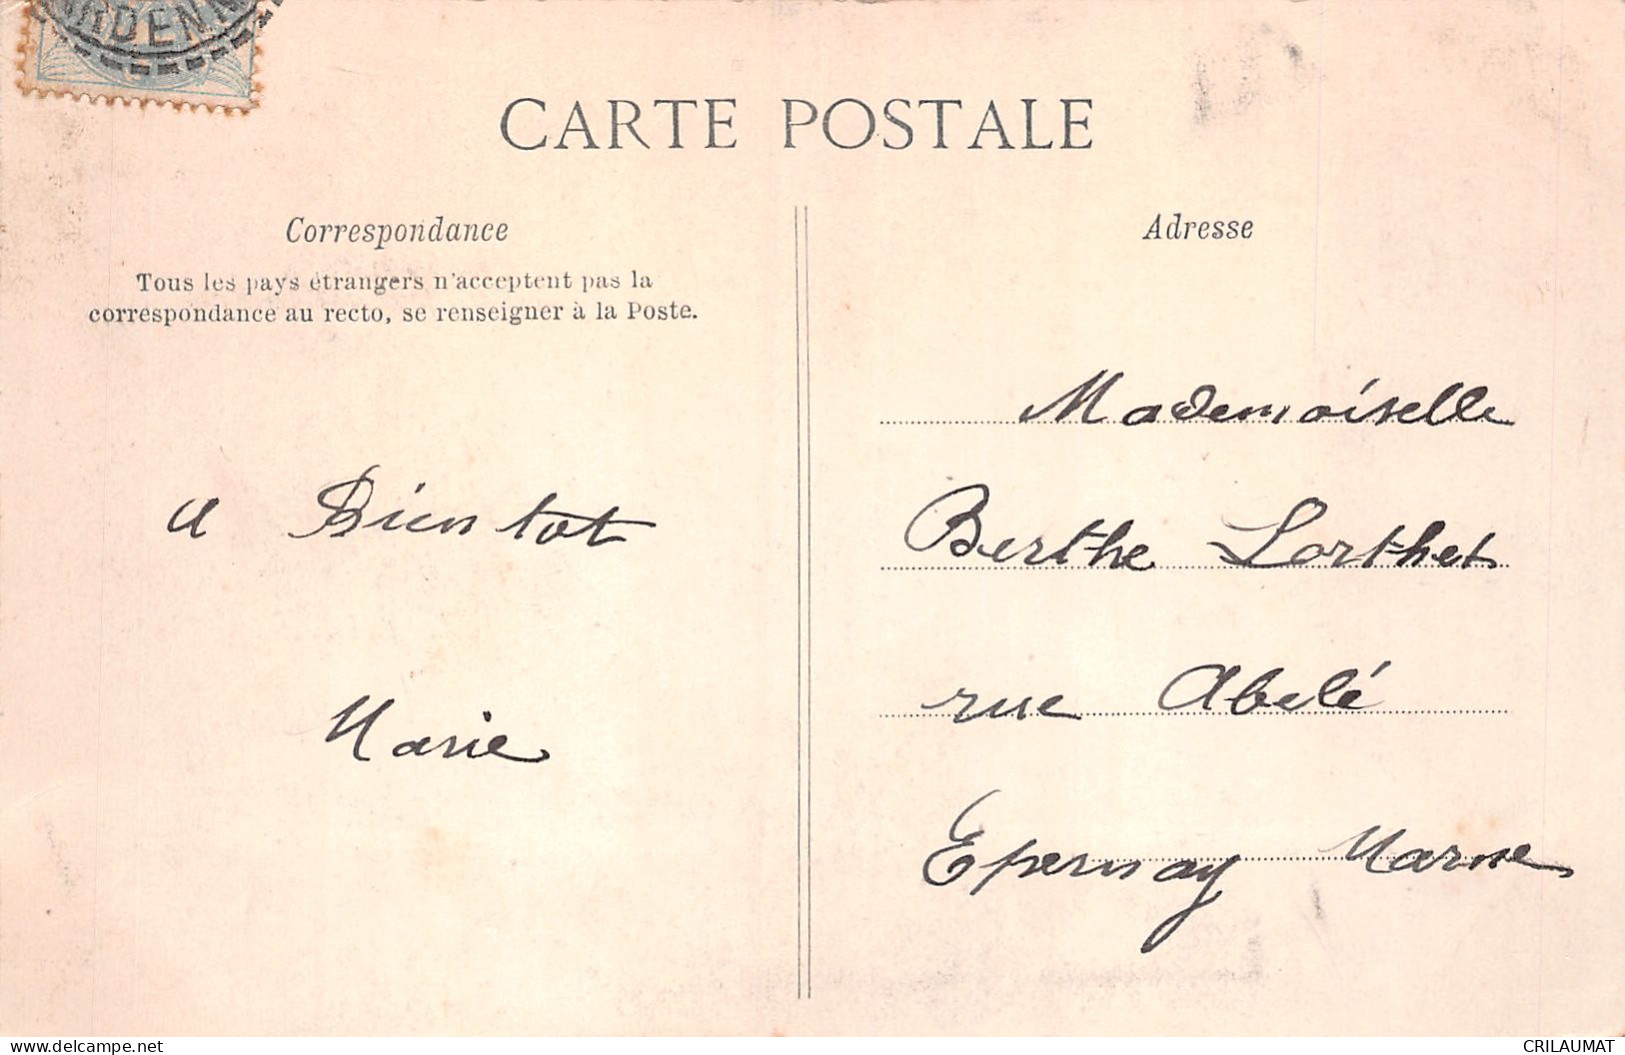 CARTE POSTALE
Correspondance
Tous les pays étrangers n'acceptent pas la
correspondance au recto, se renseigner à la Poste.
a Bientot
Marie
Adresse
Mademoiselle
Berthe Lorthet
rue Abelé
Epernay Marne
delcampe.net
CRILAUMAT